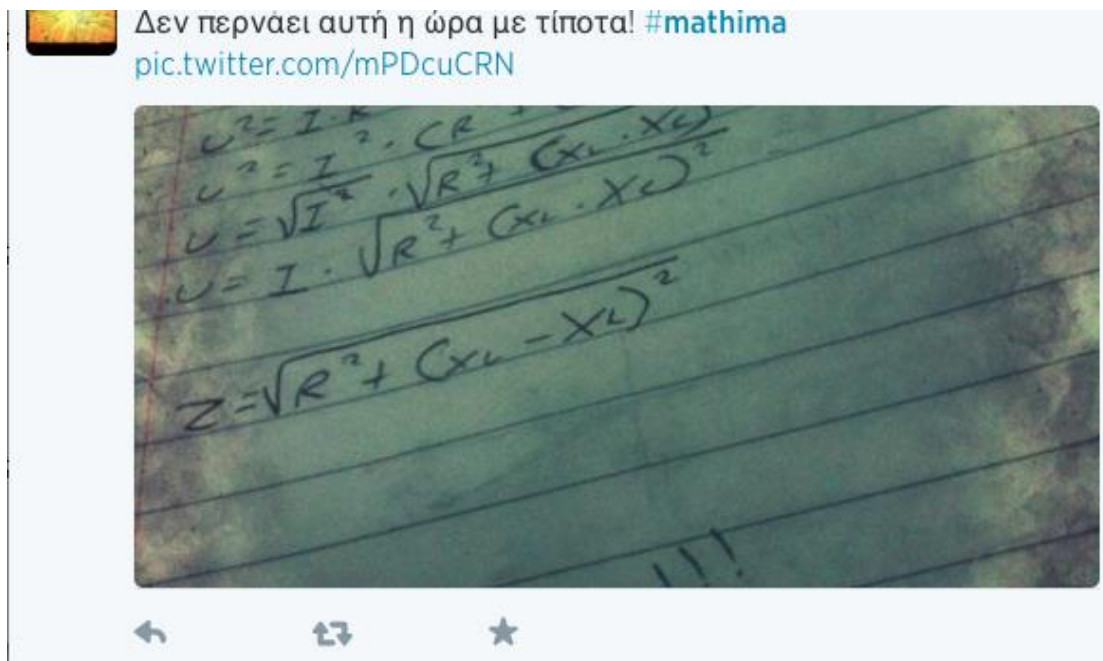 Δεν περνάει αυτή η ώρα με τίποτα! #mathima
pic.twitter.com/mPDcuCRN
U² = I · R
U² = I² · (R +
U = √I² · √R² + (XL · XL)
U = I · √R² + (XL · XL)²
Z = √R² + (XL - XL)²
!!!